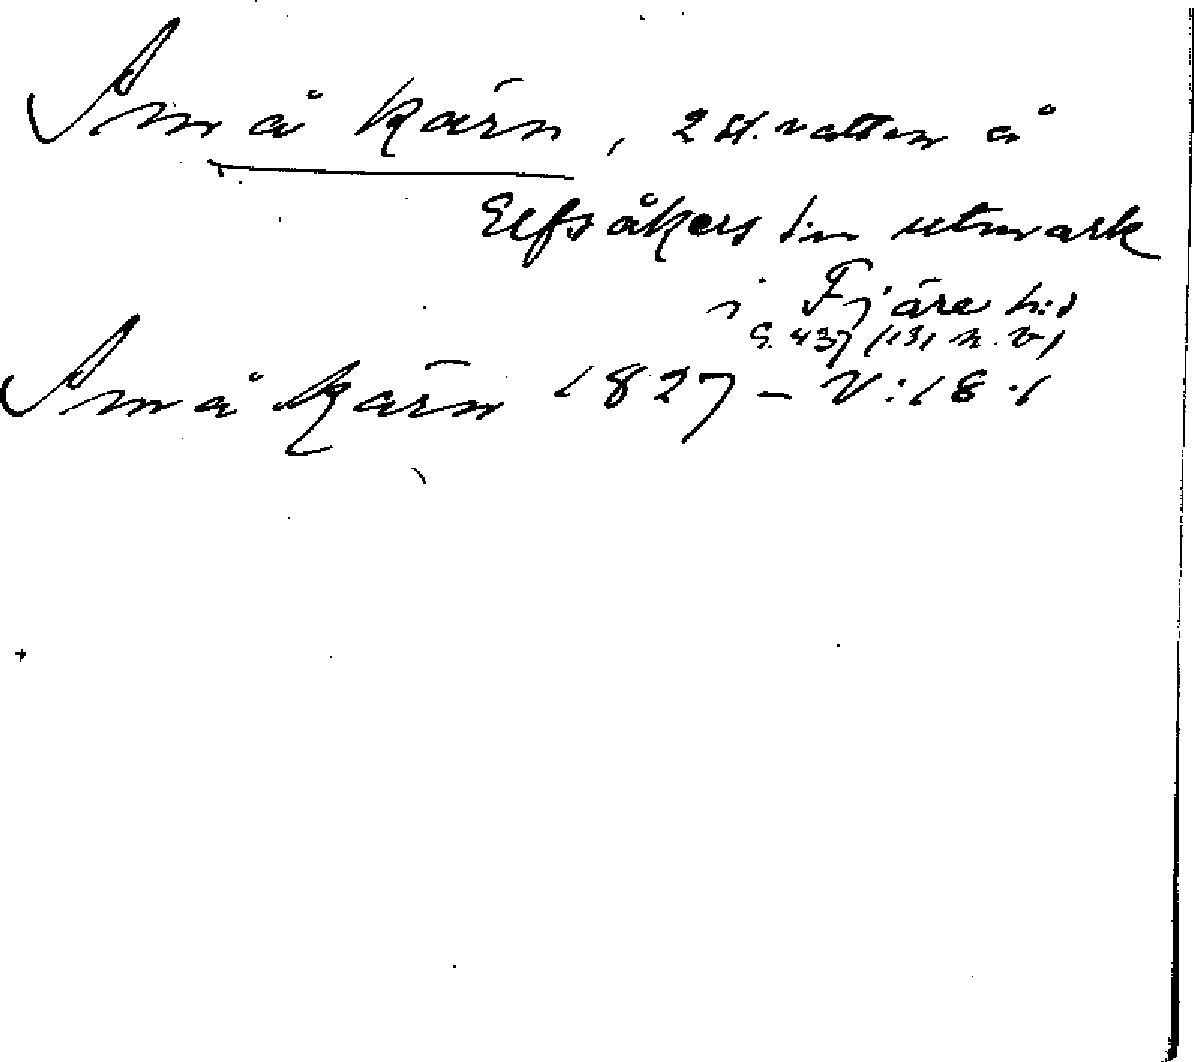 Små kärn, 2 st. vatten å
Elfsåkers bys utmark
i Fjäre h:d
G. 437 (131 n. v)
Små kärn 1827 - V:18:1